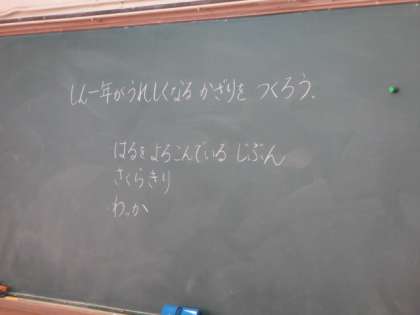 しん一年がうれしくなる かざりを つくろう。
はるを よろこんでいる じぶん
さくらきり
わっか